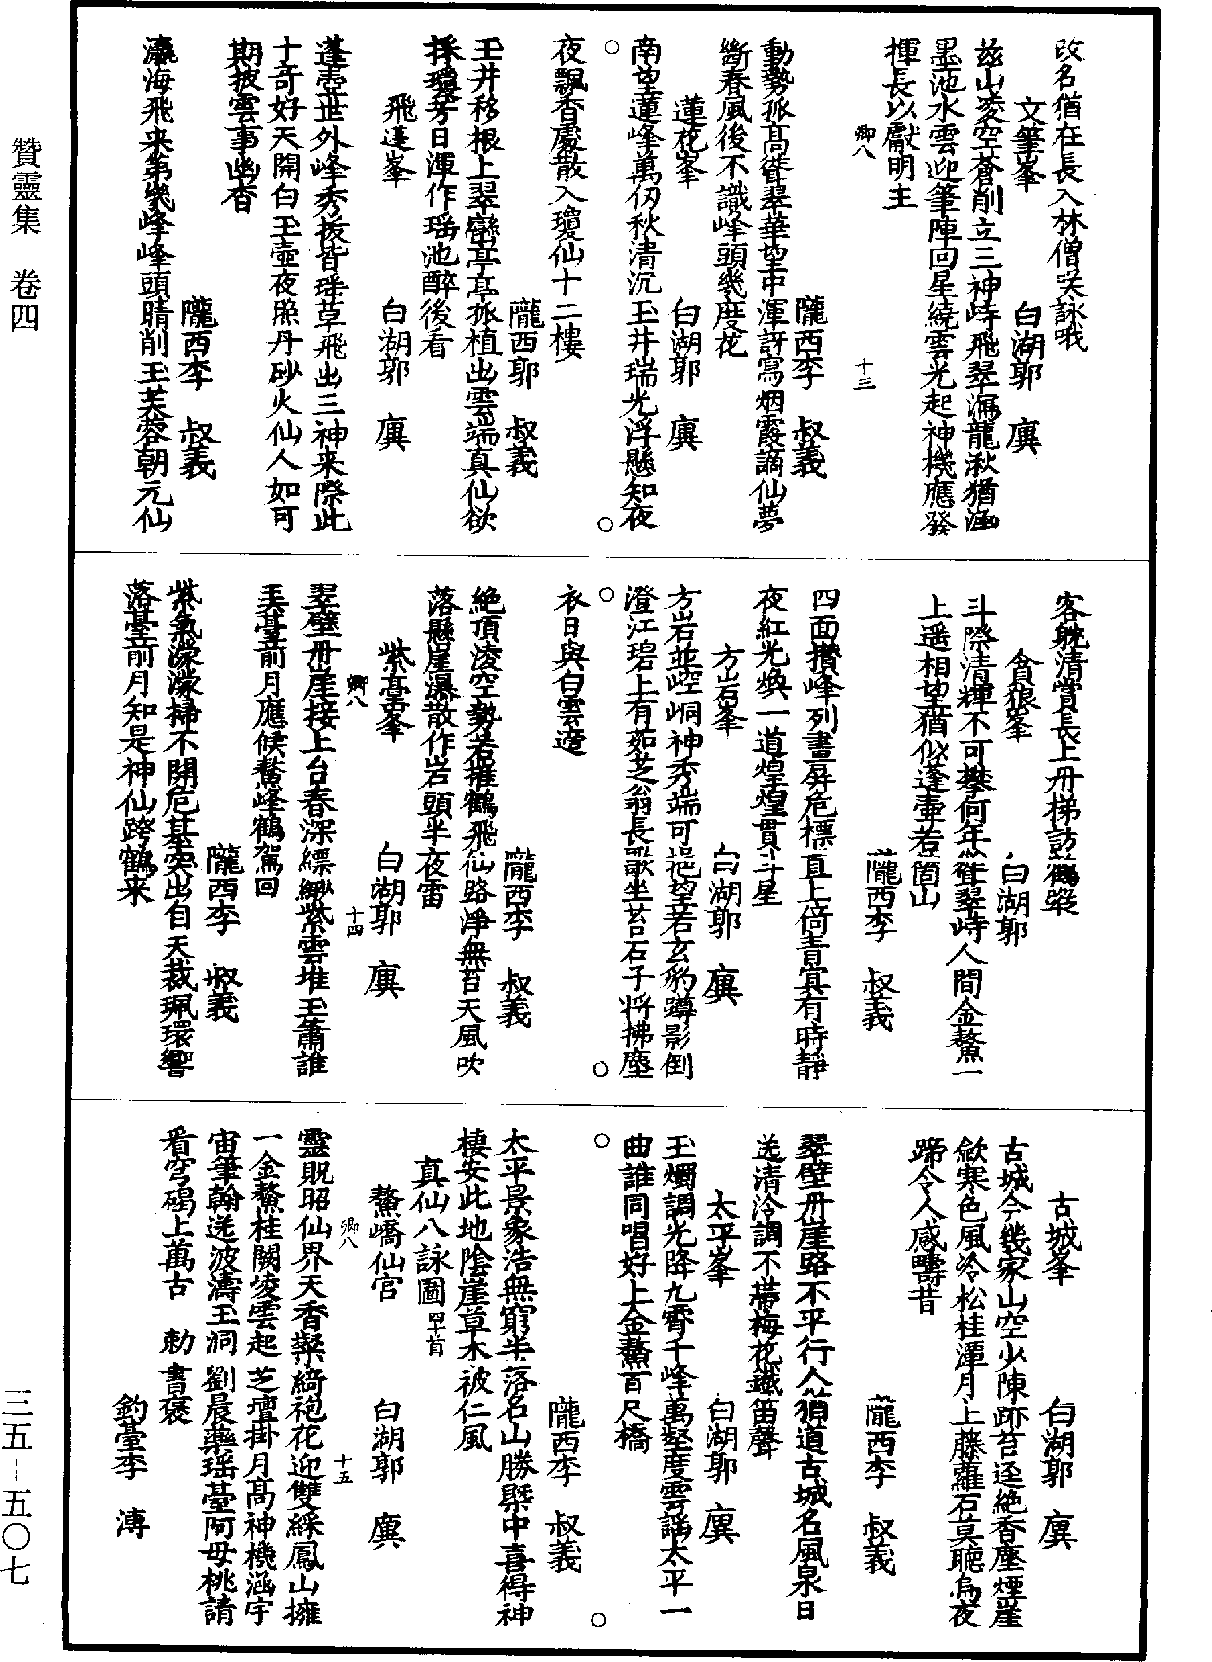 贊靈集 卷四
改名猶在長入林僧咲詠哦
文筆峯 白湖郭 㒇
茲山凌空蒼削立三神峙飛翠漏龍湫猶涵
墨池水雲迎筆陣回星繞雲光起神機應發
揮長以獻明主
卿八 十三
隴西李 叔義
動勢孤高聳翠華望中渾訝寫烟霞謫仙夢
斷春風後不識峰頭幾度花
蓮花峯 白湖郭 㒇
南望蓮峰萬仞秋清沉玉井瑞光浮懸知夜
夜飄香處散入瓊仙十二樓
隴西郭 叔義
玉井移根上翠巒亭亭孤植出雲端真仙欲
採瓊芳日渾作瑶池醉後看
飛蓬峯 白湖郭 㒇
蓬壺㟨外峰秀拔皆瑶草飛出三神来際此
十奇好天開白玉壺夜照丹砂火仙人如可
期披雲事幽杳
隴西李 叔義
瀛海飛来第幾峰峰頭晴削玉芙蓉朝元仙
客躭清賞長上丹梯訪鶴蹤
貪狼峯 白湖郭
斗際清輝不可攀何年聳翠峙人間金鰲一
上遥相望猶似蓬壺若箇山
隴西李 叔義
四面攅峰列畫屏危標直上倚青㝠有時靜
夜紅光煥一道煌煌貫斗星
方岩峯 白湖郭 㒇
方岩並崆峒神秀端可挹望若玄豹蹲影倒
澄江碧上有茹芝翁長歌坐苔石予將拂塵
衣日與白雲適
隴西李 叔義
絶頂凌空勢若摧鶴飛仙路淨無苔天風吹
落懸崖瀑散作岩頭半夜雷
紫臺峯 白湖郭 㒇
卿八 十四
翠壁丹崖接上台春深縹緲紫雲堆玉簫誰
美臺前月應候鰲峰鶴駕回
隴西李 叔義
紫氣濛濛掃不開危基突出自天裁珮環響
落臺前月知是神仙跨鶴来
古城峯 白湖郭 㒇
古城今幾家山空少陳跡苔逕絶香塵煙崖
歛寒色風冷松桂潭月上藤蘿石莫聴烏夜
蹄令人感疇昔
隴西李 叔義
翠壁丹崖路不平行人猶道古城名風泉日
送清冷調不帶梅花鐵笛聲
太平峯 白湖郭 㒇
玉燭調光降九霄千峰萬壑度雲謡太平一
曲誰同唱好上金鰲百尺橋
隴西李 叔義
太平景象浩無窮半落名山勝槩中喜得神
棲安此地陰崖草木被仁風
真仙八詠圖四十首
鰲嶠仙官 白湖郭 㒇
卿八 十五
靈貺昭仙界天香襲綺袍花迎雙綵鳳山擁
一金鰲桂闕凌雲起芝壇掛月高神機涵宇
宙筆翰送波濤玉洞劉晨藥瑶臺阿母桃請
看穹碣上萬古 勅書褒
釣臺李 漙
三五-五〇七